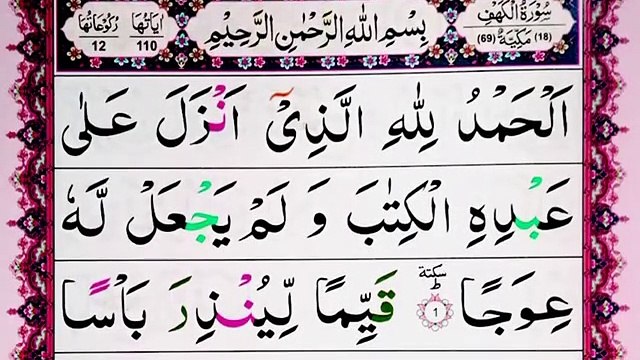 سُوْرَةُ الْكَهْفِ
(18) مَكِّيَّةٌ (69)
بِسْمِ اللهِ الرَّحْمٰنِ الرَّحِيْمِ
اٰيَاتُهَا 110
رُكُوْعَاتُهَا 12
اَلْحَمْدُ لِلّٰهِ الَّذِيْۤ اَنْزَلَ عَلٰى
عَبْدِهِ الْكِتٰبَ وَ لَمْ يَجْعَلْ لَّهٗ
عِوَجًا ؕ سكتة 1 قَيِّمًا لِّيُنْذِرَ بَاْسًا